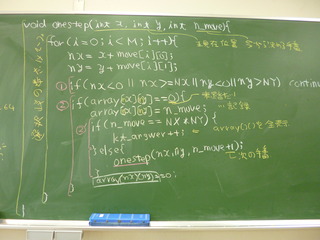 void onestep(int x, int y, int n_move){
for(i=0; i<M; i++){
nx = x + move[i][0];
ny = y + move[i][1];
① if(nx<0 || nx>=NX || ny<0 || ny>NY) continu
② if(array[nx][ny]==0){
array[nx][ny] = n_move;
③ if(n_move == NX*NY){
kt_answer++;
}else{
onestep(nx,ny,n_move+1);
次の手
}
array[nx][ny]=0;
}
}
}